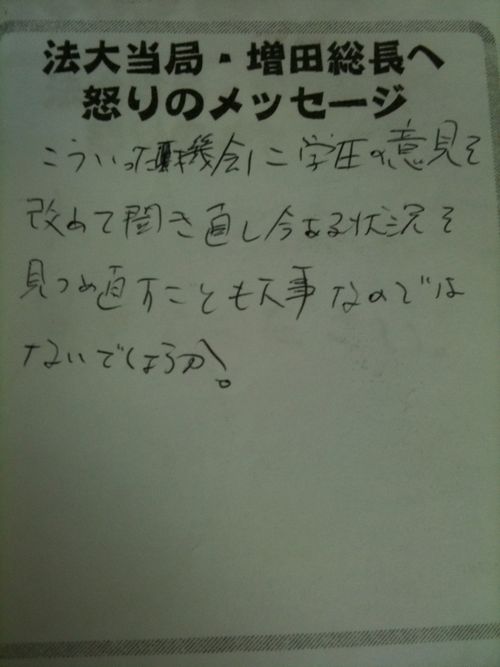 法大当局・増田総長へ
怒りのメッセージ
こういった機会に学生の意見を
改めて聞き直し今ある状況を
見つめ直すことも大事なのでは
ないでしょうか。